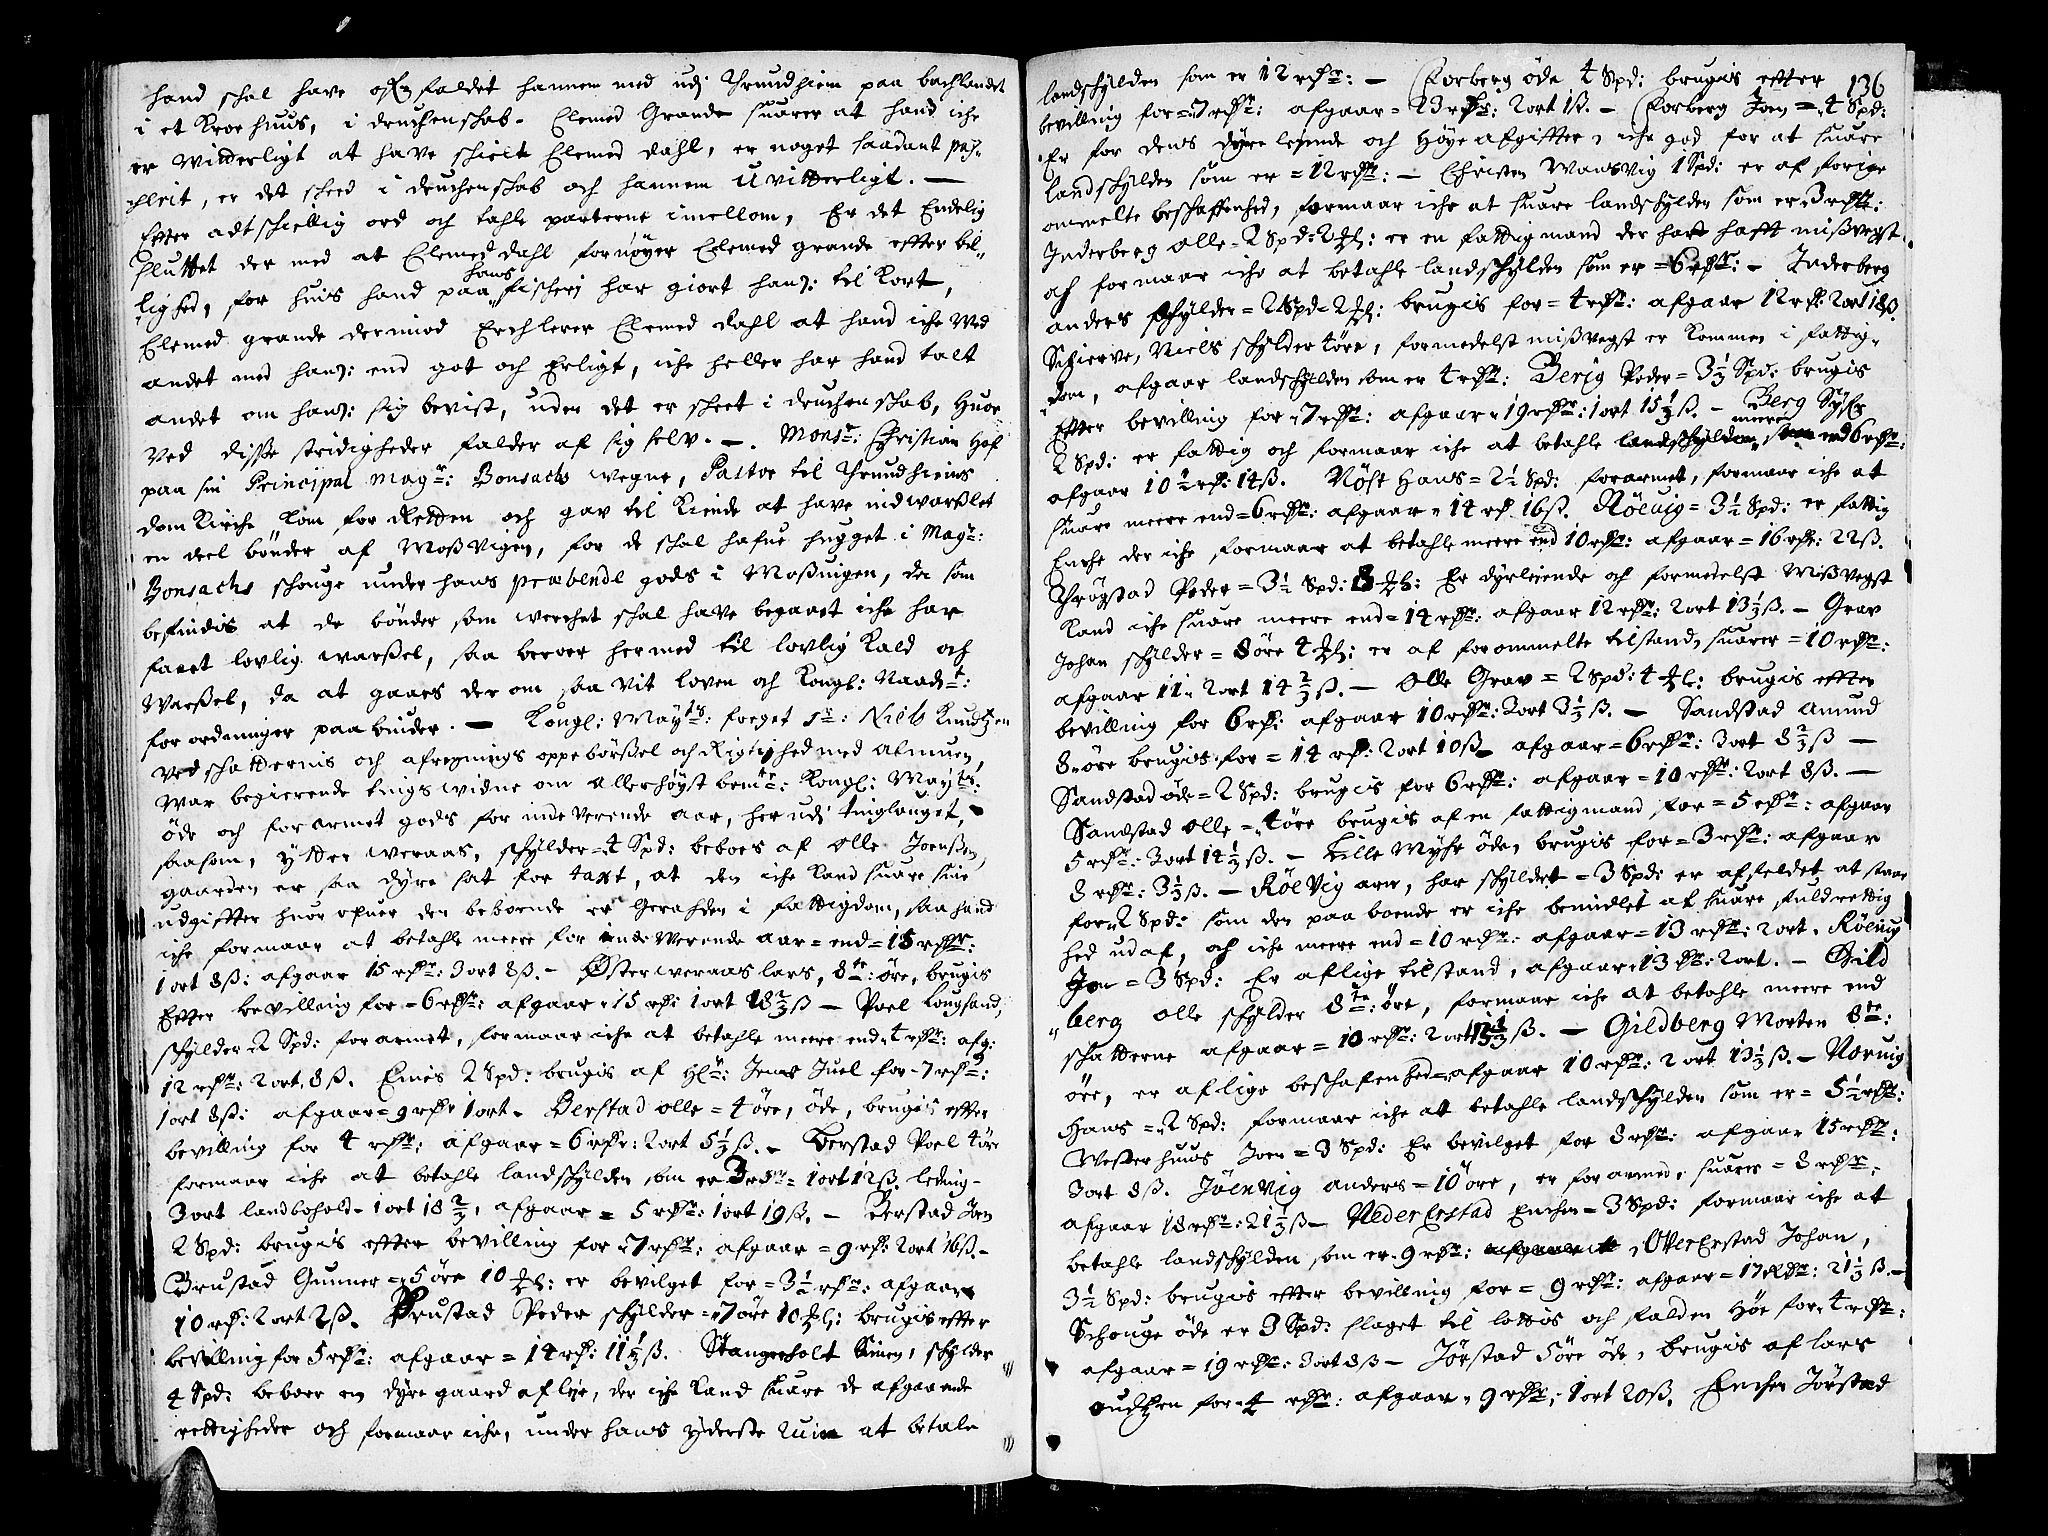 hand schal have ofver faldet hannem med udj Thrundhiem paa bachlandet
i et Kroe huus, i druchenschab. Elemed Grande suarer at hand iche
er Witterligt at have schielt Elemed dahl, er noget saadant pas¬
serit, er det scheed i druchenschab och hannem Uvitterligt. —
Efter adtschiellig ord och tahle parterne imellom, Er det Endelig
sluttet der med at Elemed Dahl fornøyer Elemed grande efter bil¬
lighed, for huis hand paa hans fischerj har giort hanß: til Kort,
Elemed grande derimod Erchlerer Elemed Dahl at hand iche Wed
andet med hanß: end got och Erligt, iche heller har hand talt
andet om hanß: sig bevist, uden det er scheet i druchenschab, huor
Ved disse stridigheder falder af sig selv. —. Monsr: Christian Hof
paa sin Principal Magr: Bonsachs wegne, Pastor til Thrundhiems
dom Kirche kom for Retten och gav til Kiende at have indwarßlet
en deel bønder af Moßvigen, for de schal hafue hugget i Magr:
Bonsachs schouge under hans præbende gods i Moßuigen, da som
befindis at de bønder som werchet schal have begaaet iche har
faaet lovlig warßel, saa beroer hermed til lovlig Kald och
Warßel, da at gaaes der om saa vit loven och Kongl: Naadst:
forordninger paabinder. — Kongl: Mayts: foget Sr: Niels Knudtzen
Ved schatternis och afregnings oppebörßel och Rigtighed med Almuen,
War begierende tings widne om Allerhøyst bemte: Kongl: Mayts:
øde och forarmet gods for indeverende aar, her udj tinglauget,
saasom, ytter weraas, schylder = 4 Spd: beboes af Olle Joenßen,
gaarden er saa dyre sat for taxt, at den iche Kand suare sine
udgiffter huor ofuer den beboende er Gerahden i fattigdom, saa hand
iche formaar at betahle meere for indeWerende aar = end = 15 rdr:
1 ort 8ß: afgaar 15 rdr: 3 ort 8ß. — Øster weraas lars, 8te: øre, brugis
Efter bevilling for = 6 rdr: afgaar = 15 rd: 1 ort 18 2/3 ß — Poel Longsand,
schylder 2 Spd: forarmet, formaar iche at betahle meere end 4 rdr: afg:
12 rdr: 2 ort, 8ß. Einès 2 Spd: brugis af Hr: Jens Juel for = 7 rdr:
1 ort 8ß: afgaar = 9 rdr 1 ort. Berstad olle = 4 øre, öde, brugis efter
bevilling for 4 rdr: afgaar = 6 rdr: 2 ort 5 1/3 ß. — Berstad Poel 4 øre
formaar iche at betahle landschylden som er 3 rdr = 1 ort 12ß. leding =
3 ort landbohold = 1 ort 18 2/3, afgaar = 5 rdr: 1 ort 19ß. — Berstad Joen
2 Spd: brugis efter bevilling for = 7 rdr: afgaar = 9 rd: 2 ort 16ß. —
Brustad Gunner = 5 øre 10 : er bevilget for = 3 1/2 rdr: afgaar
10 rd: 2 ort 2ß. Brustad Peder schylder = 7 øre 10 : brugis efter
bevilling for 5 rdr: afgaar = 14 rd: 11 1/3 ß. Stangerholt Simen, schylder
4 Spd: beboer en dyre gaard af leje, der iche Kand suare de afgaaende
rettigheder och formaar iche, under hans yderste ruin at betale
136
landschylden som er 12 rdr: — Forberg öde 4 Spd: brugis efter
bevilling for = 7 rdr: afgaar = 23 rdr: 2 ort 1ß. — Forberg Joen = 4 Spd:
Er for dens dyre leiende och Høye afgiffter, iche god for at suare
landschylden som er = 12 rdr: — Christen Wansvig 1 Spd: er af forige
ommelte beschaffenhed, formaar iche at suare landschylden som er 3 rdr:
Inderberg Olle = 2 Spd: 2 : er en fattig mand der hafft mißvegt
och formaar iche at betahle landschylden som er = 6 rdr: — Inderberg
anders schylder = 2 Spd 2 : brugis for = 4 rdr: afgaar 12 rd: 2 ort 18ß.
Schierve, Niels schylder 4 øre, formedelst mißvegt er kommen i fattig¬
dom, afgaar landschylden som er 4 rdr: Berig Peder = 3 1/2 Spd: brugis
Efter bevilling for = 7 rdr: afgaar = 19 rdr: 1 ort 15 1/3 ß. — Berg
2 Spd: er fattig och formaar iche at betahle meere end 6 rdr:
afgaar 10 1/2 rd: 14ß. Nøst Hans = 2 1/2 Spd: forarmet, formaar iche at
suare meere end = 6 rdr: afgaar = 14 rd 16ß. Röluig = 3 1/2 Spd: er fattig
Enche der iche formaar at betahle meere end 10 rdr: afgaar = 16 rdr: 22ß.
Thrögstad Peder = 3 1/2 Spd: 8 : Er dyrleiende och formedelst Mißvegt
Kand iche suare meere end = 14 rdr: afgaar 12 rdr: 2 ort 13 1/3 ß. — Grav
Johan schylder = 8 øre 4 : er af forommelte tilstand, suarer = 10 rdr:
afgaar 11 = 2 ort 14 2/3 ß. — Olle Grav = 2 Spd: 4 : brugis efter
bevilling for 6 rd: afgaar 10 rdr: 2 ort 3 1/3 ß. — Sandstad Amund
8 øre brugis for = 14 rd: 2 ort 10ß afgaar = 6 rdr: 3 ort 8 2/3 ß —
Sandstad öde = 2 Spd: brugis for 6 rdr: afgaar = 10 rdr: 2 ort 8ß. —
Sandstad Olle = 4 øre brugis af en fattig mand for = 5 rdr: afgaar
5 rdr: 3 ort 14 1/3 ß. — Lille Myhr öde, brugis for = 3 rdr: afgaar
8 rdr: 3 1/3 ß. — RölVig arn, har schyldet = 3 Spd: er affeldet at staa
for 2 Spd: som den paaboende er iche bemidlet at suare fuld rettig
hed udaf, och iche meere end = 10 rdr: afgaar = 13 rdr: 2 ort. Röluig
Jon = 3 Spd: Er af lige tilstand, afgaar 13 rdr: 2 ort. — Gild
berg Olle schylder 8te: øre, formaar iche at betahle meere end
schatterne afgaar = 10 rdr: 2 ort 13 1/3 ß. — Gildberg Morten 8te:
øre, er af lige beschafenhed = afgaar 10 rdr: 2 ort 13 1/3 ß. — Noruig
Hans = 2 Spd: formaar iche at betahle landschylden som er = 5 1/2 rdr:
Westerhuus Joen = 3 Spd: Er bevilget for 8 rdr: afgaar 15 rdr:
3 ort 8ß. Jöenvig anders = 10 øre, er forarmed, suarer = 8 rdr:
afgaar 18 rdr: 21 1/3 ß — Neder Erstad Enchen = 3 Spd: formaar iche at
betahle landschylden som er 9 rdr: Over Erstad Johan,
3 1/2 Spd: brugis efter bevilling for = 9 rdr: afgaar = 17 rdr: 21 1/3 ß. —
Schouge öde er 3 Spd: slaget til lottis och falden Høe for 4 rdr:
afgaar = 19 rdr: 3 ort 8ß — Jørstad 5 øre öde, brugis af lars
oudtzen for 4 rdr: afgaar = 9 rdr: 1 ort 20ß. Enchen Jørstad